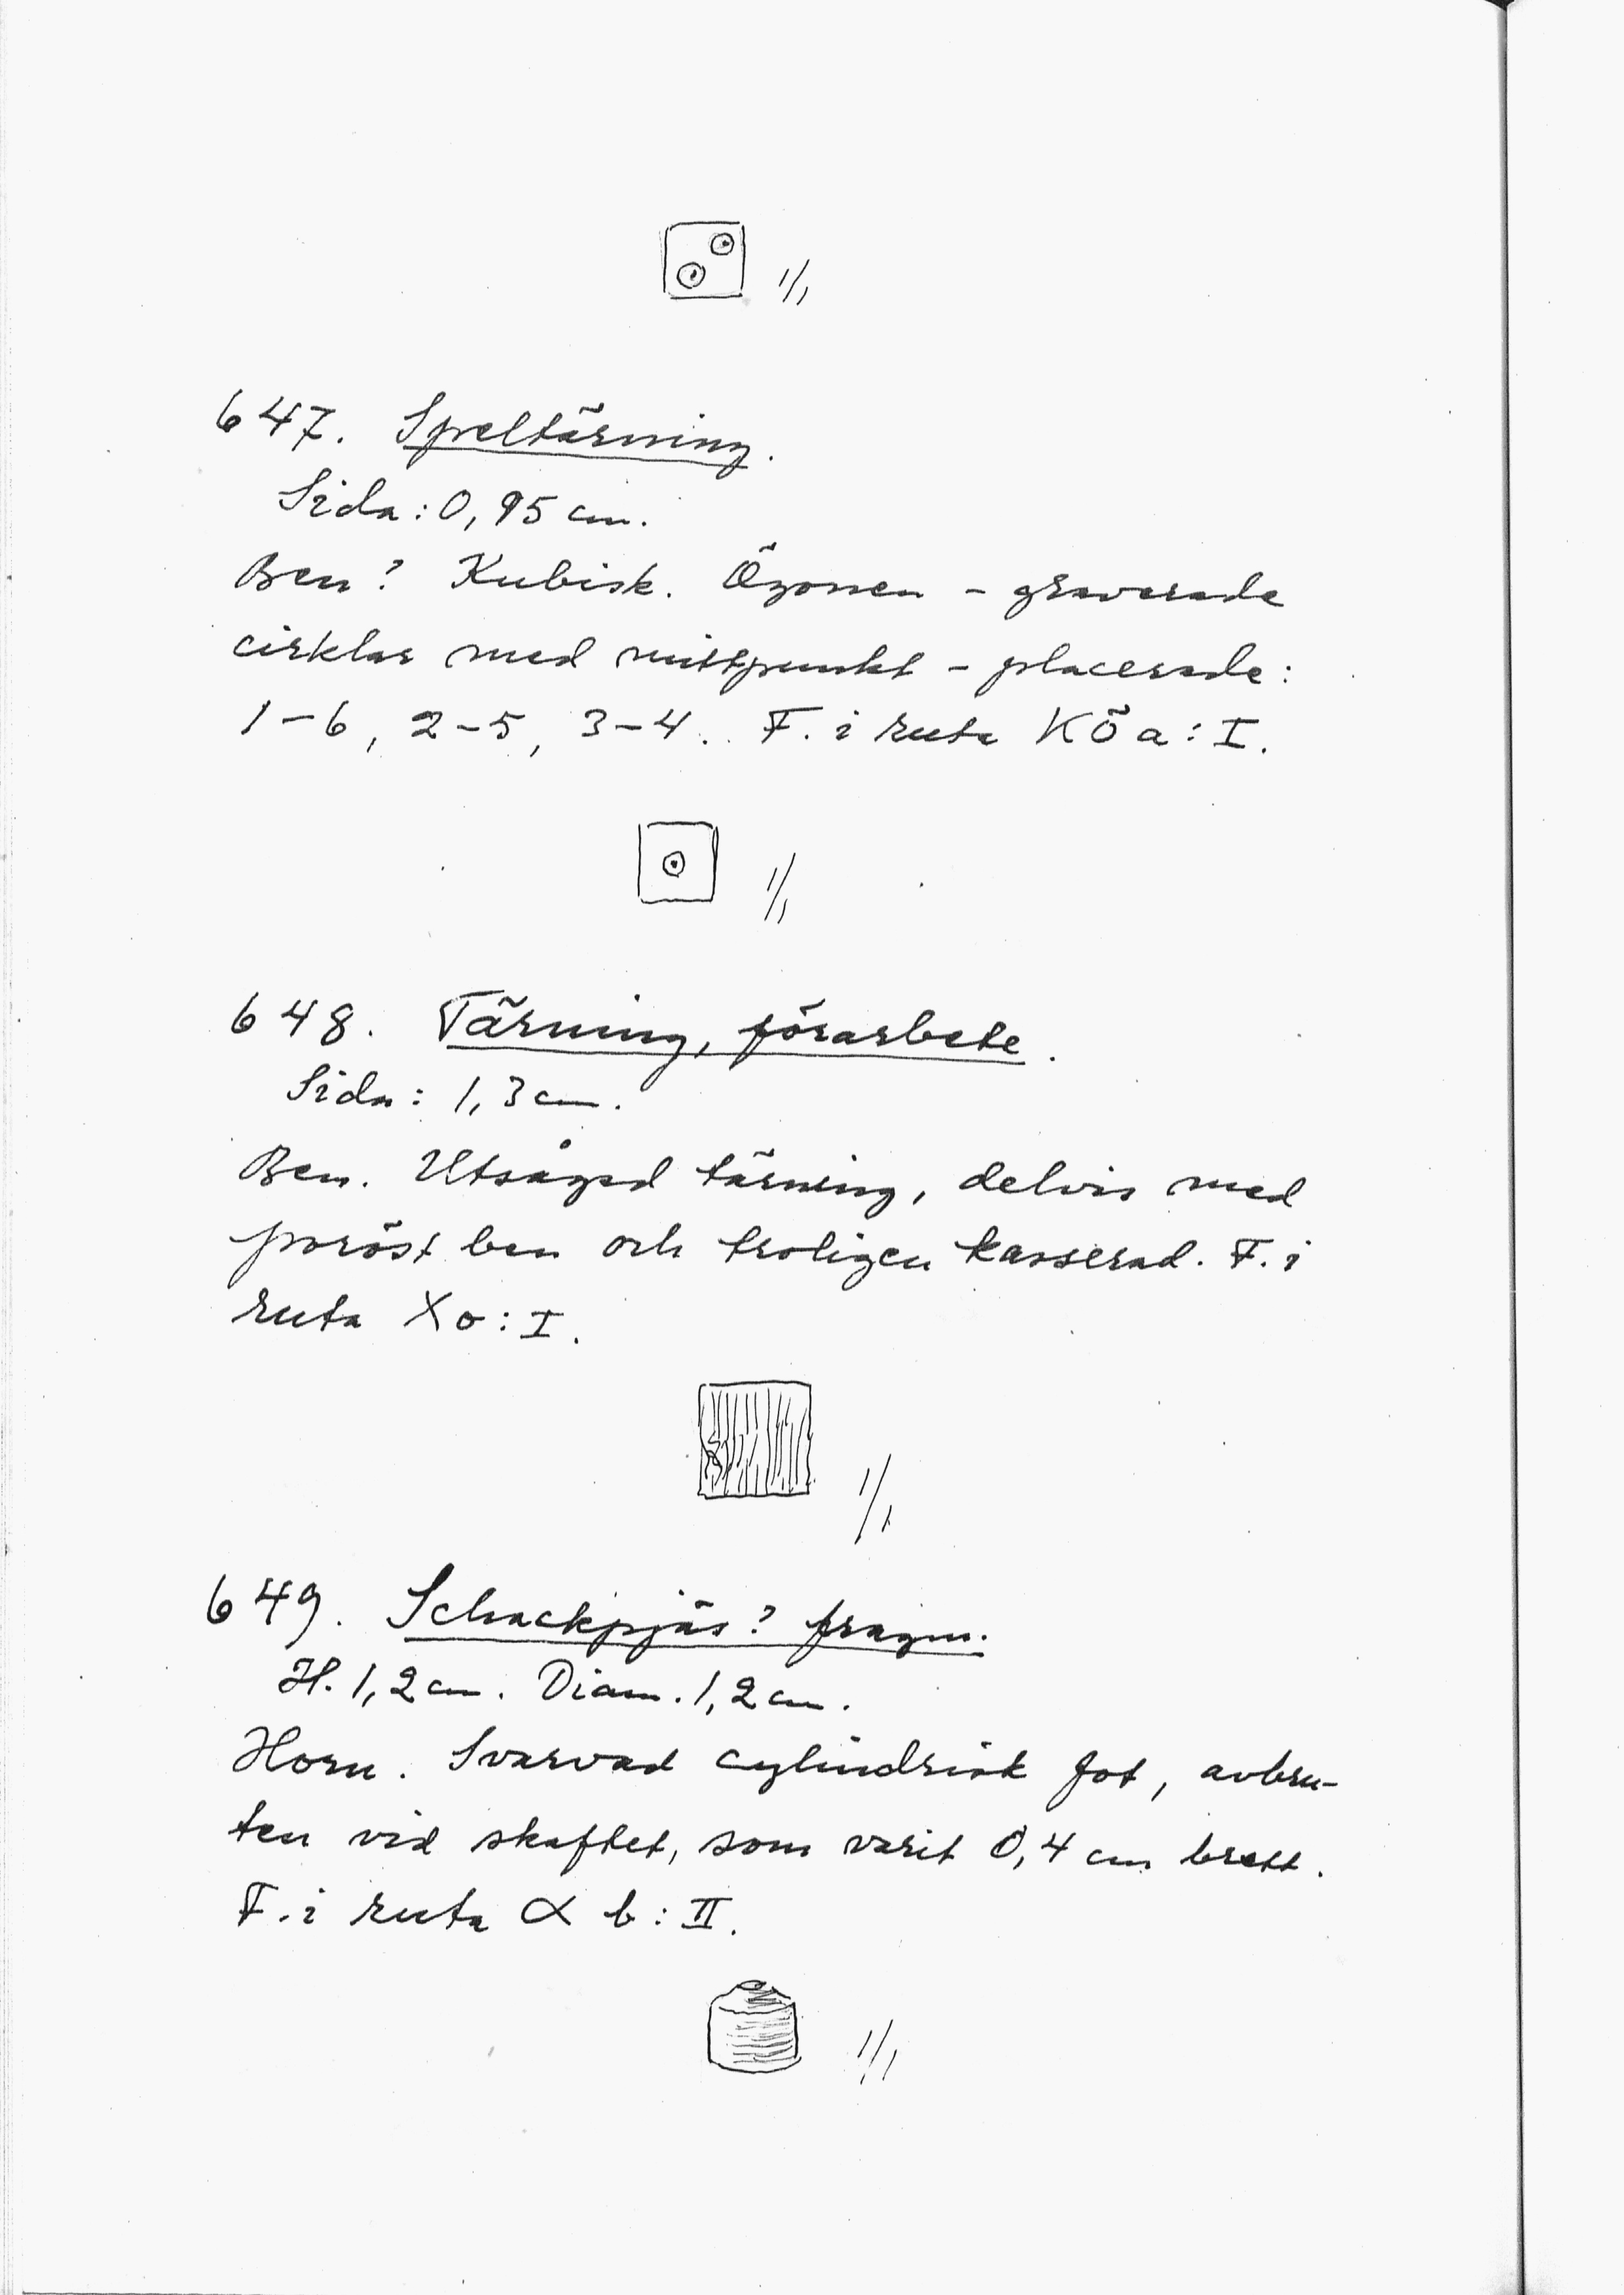 1/1
647. Speltärning.
Sida: 0,95 cm.
Ben? Kubisk. Ögonen - graverade
cirklar med mittpunkt - placerade:
1-6, 2-5, 3-4. F. i ruta KÖa: I.
1/1
648. Tärning, förarbete.
Sida: 1,3 cm.
Ben. Utsågad tärning, delvis med
poröst ben och troligen kasserad. F. i
ruta Xo: I.
1/1
649. Schackpjäs? fragm.
H. 1,2 cm. Diam. 1,2 cm.
Horn. Svarvad cylindrisk fot, avbru-
ten vid skaftet, som varit 0,4 cm brett.
F. i ruta α b: II.
1/1